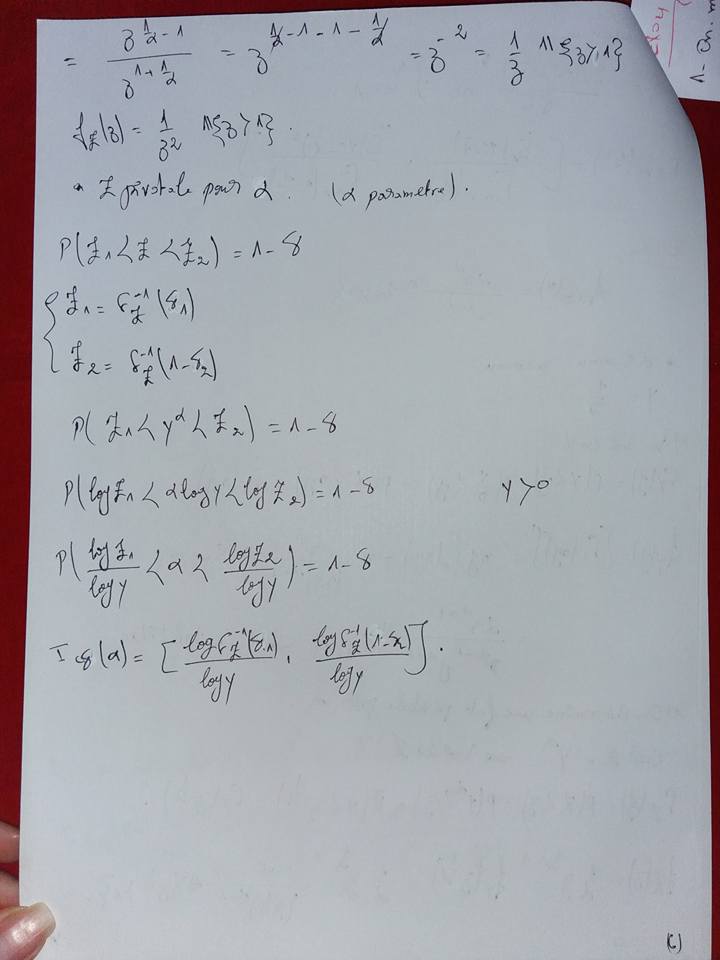 = z^{1/α - 1} / z^{1 + 1/α} = z^{1/α - 1 - 1 - 1/α} = z^{-2} = 1/z 11{z>1}
f_Z(z) = 1/z² 11{z>1}.
Z pivotale pour α. (α parametre).
P(Z₁ < Z < Z₂) = 1-δ
{ Z₁ = F_Z^{-1}(δ₁)
Z₂ = F_Z^{-1}(1-δ₂)
P(Z₁ < Y^α < Z₂) = 1-δ
P(log Z₁ < α log Y < log Z₂) = 1-δ Y > 0
P(log Z₁ / log Y < α < log Z₂ / log Y) = 1-δ
I_δ(α) = [log F_Z^{-1}(δ₁) / log Y , log F_Z^{-1}(1-δ₂) / log Y].
(6)